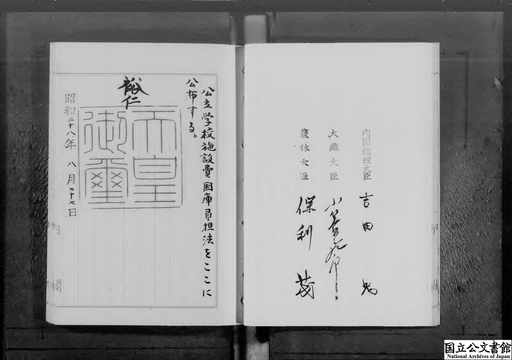 内閣総理大臣 吉田茂
大蔵大臣
農林大臣 保利茂
公立学校施設費国庫負担法をここに
公布する。
裕仁
天皇
御璽
昭和二十八年 八月二十七日
国立公文書館
National Archives of Japan